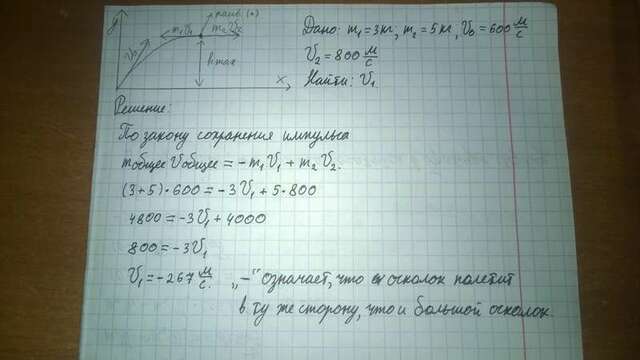 y
наив. (•)
V₀
m₁V₁
m₂V₂
hmax
x
Дано: m₁=3кг, m₂=5кг, V₀=600 м/с
V₂=800 м/с
Найти: V₁
Решение:
По закону сохранения импульса
mобщее Vобщее = -m₁V₁ + m₂V₂.
(3+5)·600 = -3V₁ + 5·800
4800 = -3V₁ + 4000
800 = -3V₁
V₁ = -267 м/с. „-" означает, что осколок полетит
в ту же сторону, что и большой осколок.